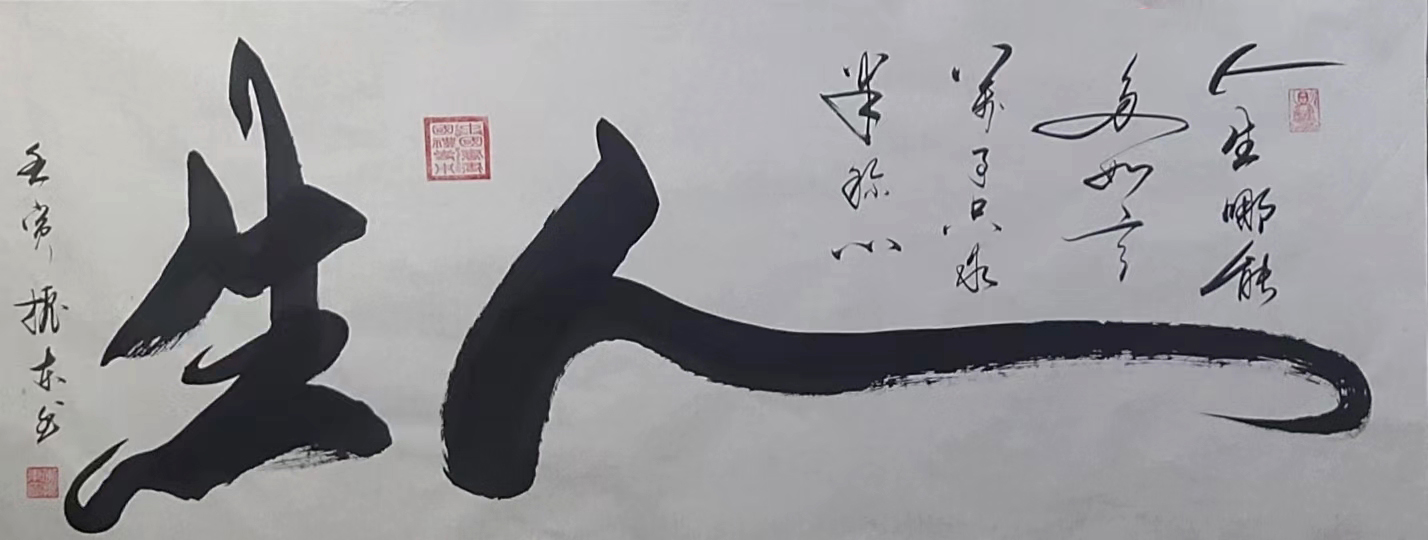 人生哪能
多如意
萬事只求
半称心
人生
壬寅振东书